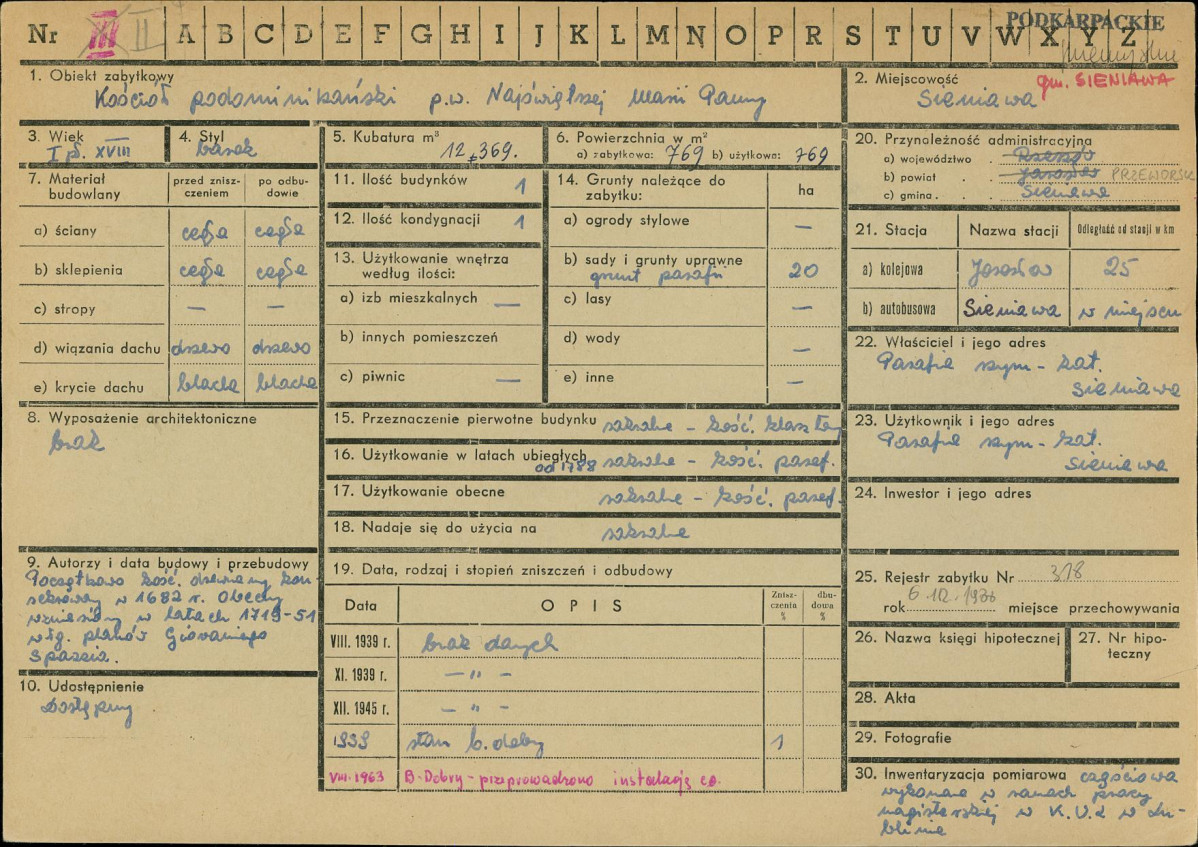 Nr III II A B C D E F G H I J K L M N O P R S T U V W X Y Z
PODKARPACKIE
1. Obiekt zabytkowy
Kościół podominikański p.w. Najświętszej Marii Panny
2. Miejscowość gm. SIENIAWA
Sieniawa
3. Wiek
I p. XVIII
4. Styl
barok
5. Kubatura m³
12.369.
6. Powierzchnia w m²
a) zabytkowa: 769 b) użytkowa: 769
20. Przynależność administracyjna
a) województwo . Rzeszów
b) powiat . . Jarosław PRZEWORSK
c) gmina . . . Sieniawa
7. Materiał budowlany
przed zniszczeniem
po odbudowie
a) ściany cegła cegła
b) sklepienia cegła cegła
c) stropy — —
d) wiązania dachu drzewo drzewo
e) krycie dachu blacha blacha
11. Ilość budynków 1
12. Ilość kondygnacji 1
13. Użytkowanie wnętrza
według ilości:
a) izb mieszkalnych —
b) innych pomieszczeń
c) piwnic —
14. Grunty należące do
zabytku:
ha
a) ogrody stylowe —
b) sady i grunty uprawne
grunt parafii 20
c) lasy —
d) wody —
e) inne —
21. Stacja Nazwa stacji Odległość od stacji w km
a) kolejowa Jarosław 25
b) autobusowa Sieniawa w miejscu
22. Właściciel i jego adres
Parafia rzym-kat.
Sieniawa
8. Wyposażenie architektoniczne
brak
15. Przeznaczenie pierwotne budynku sakralne - kość. klasztor
16. Użytkowanie w latach ubiegłych
od 1788 sakralne - kość. paraf.
17. Użytkowanie obecne sakralne - kość. paraf.
18. Nadaje się do użycia na sakralne
23. Użytkownik i jego adres
Parafia rzym-kat.
Sieniawa
24. Inwestor i jego adres
9. Autorzy i data budowy i przebudowy
Początkowo kość. drewniany kon-
sekrowany w 1682 r. Obecny
wzniesiony w latach 1719-51
wlg. planów Giovaniego
Spazzia.
10. Udostępnienie
Dostępny
19. Data, rodzaj i stopień zniszczeń i odbudowy
Data OPIS
Zniszczenia %
dbudowa %
VIII. 1939 r. brak danych
XI. 1939 r. — " —
XII. 1945 r. — " —
1959 stan b. dobry 1
VIII. 1963 B. Dobry - przeprowadzono instalację co.
25. Rejestr zabytku Nr 318
rok miejsce przechowywania
26. Nazwa księgi hipotecznej
27. Nr hipoteczny
28. Akta
29. Fotografie
30. Inwentaryzacja pomiarowa częściowa
wykonana w ramach pracy
magisterskiej w K.U.L w Lu-
blinie